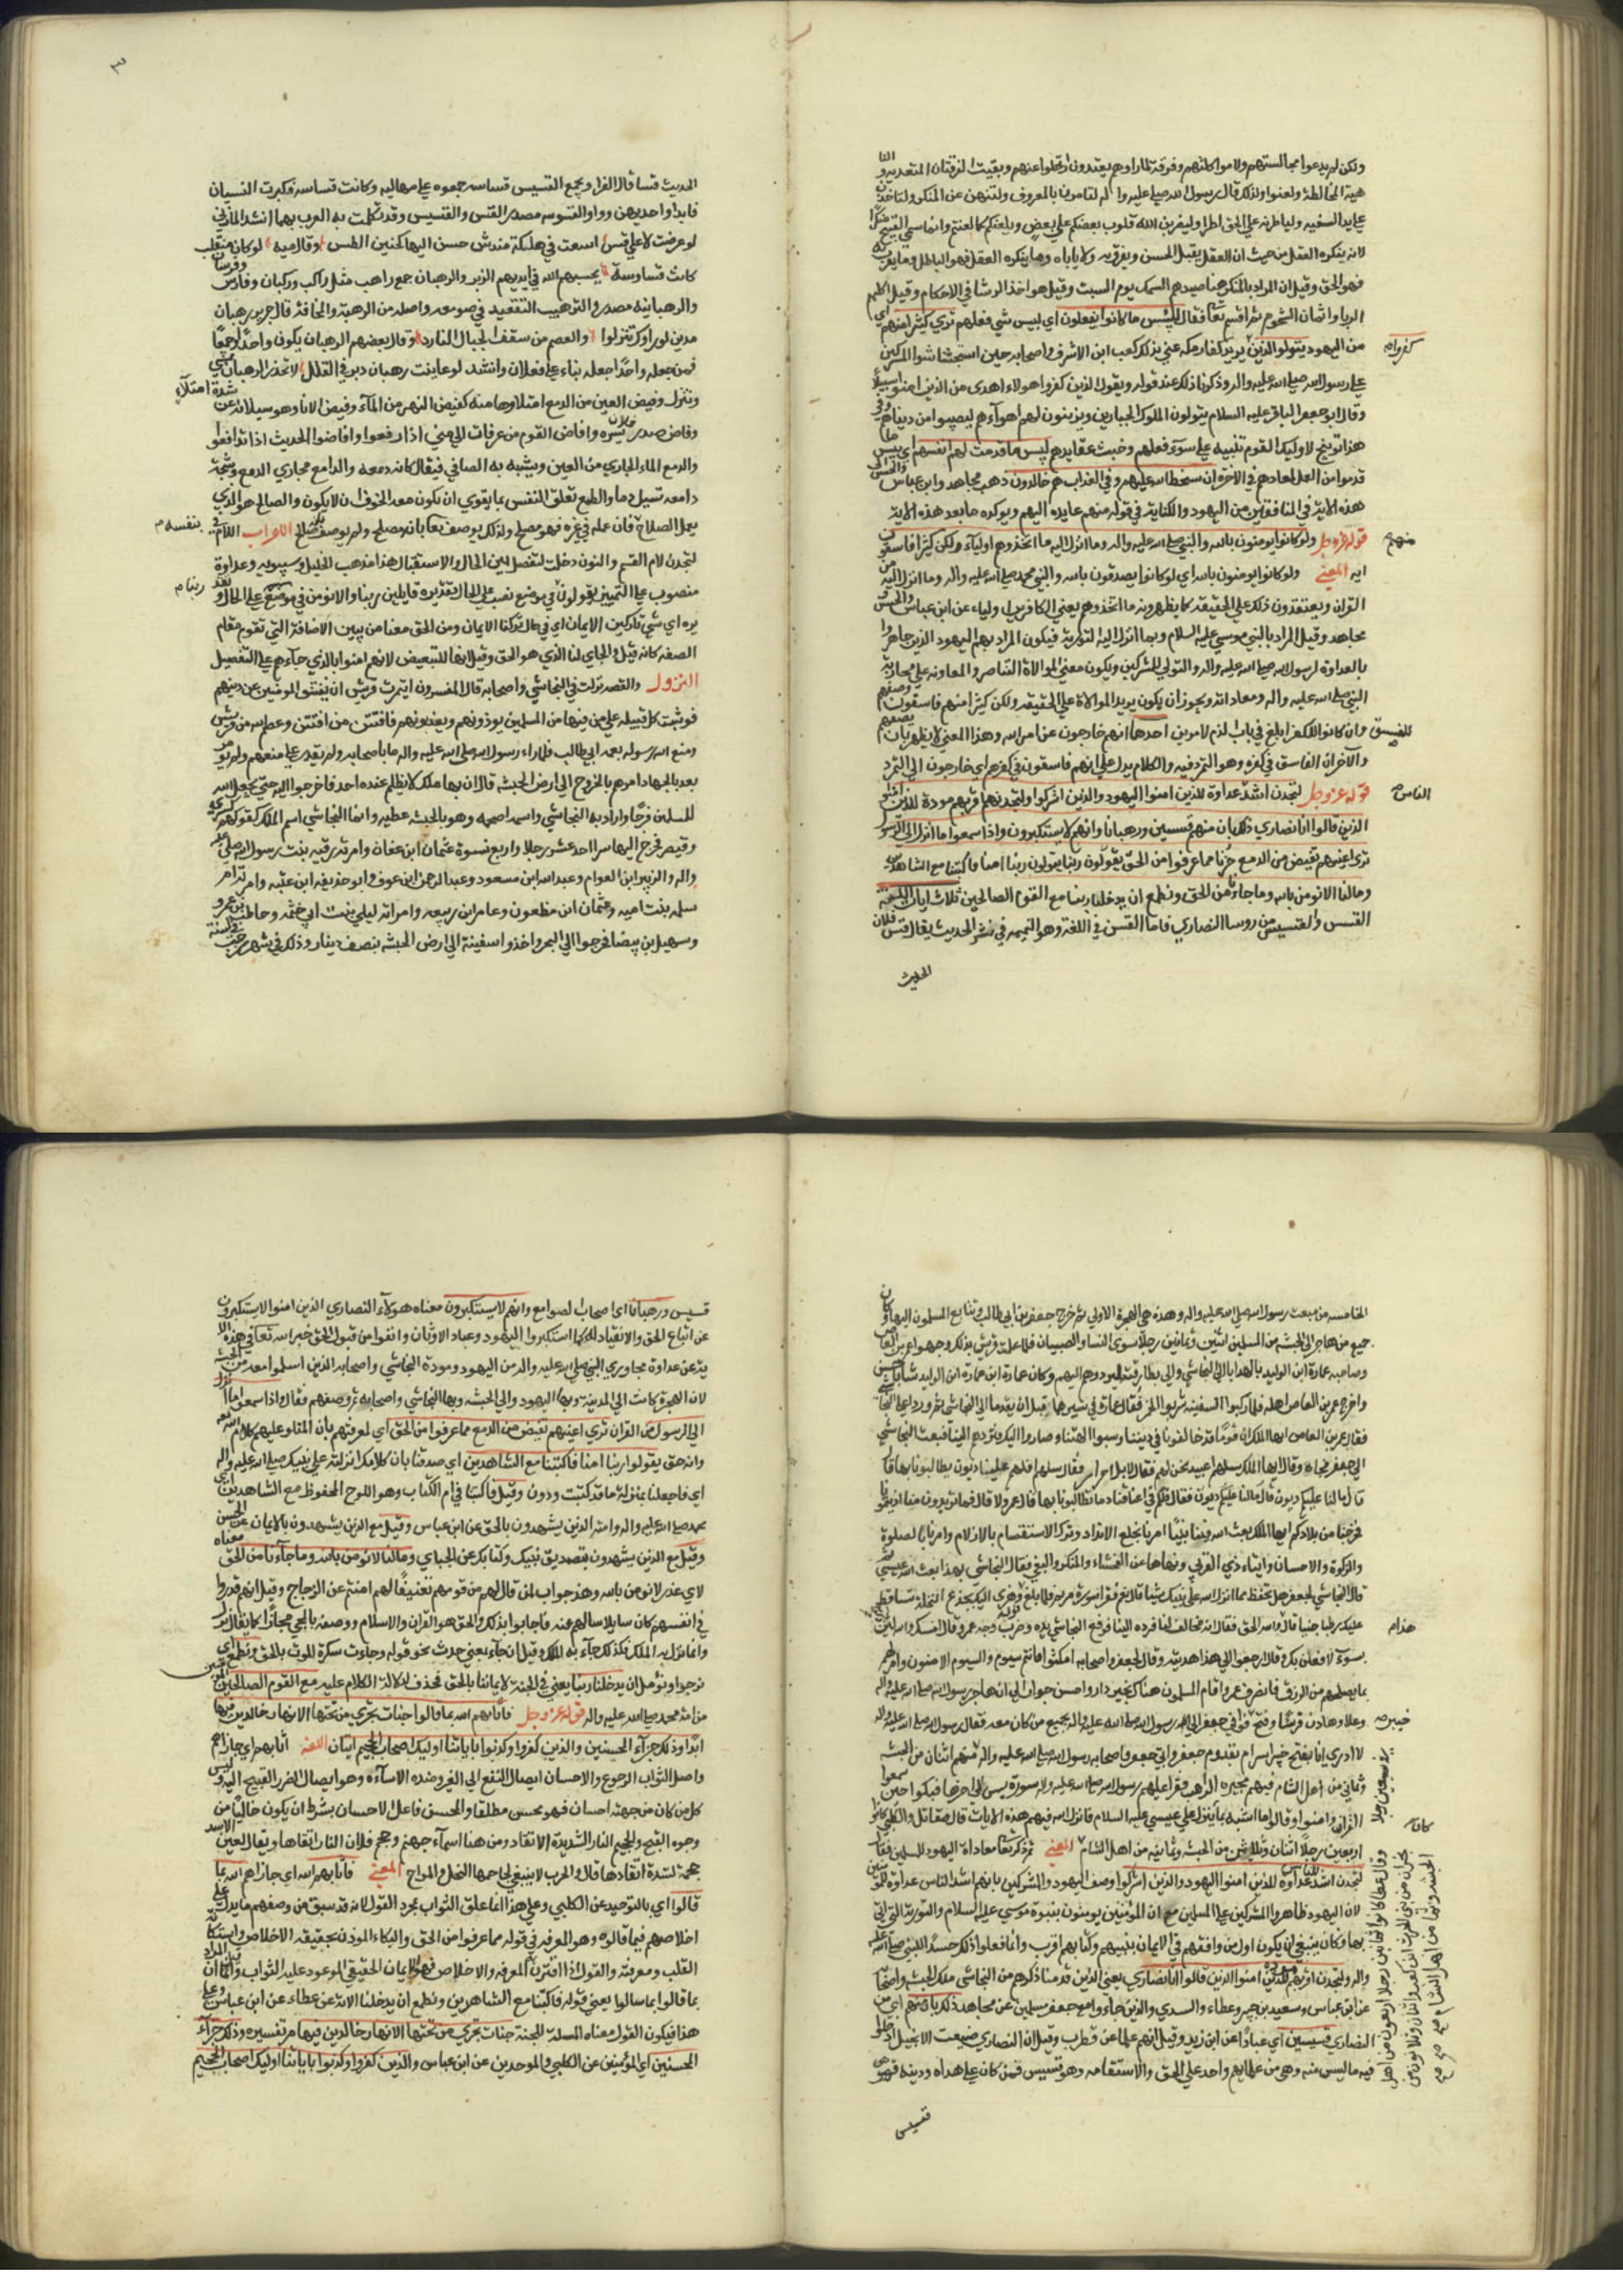 ولكن لم يدعوا مجالستهم ولا مواكلتهم وفرقة لما راوهم يعتدون ارتحلوا عنهم وبقيت الفرقتان المتعدية و
هية المخالطة ولعنوا ولذلك قال رسول الله صلى عليه وا لم لتامرون بالمعروف ولتنهن عن المنكر ولتاخذن
على يد السفيه ولياطرنه على الحق اطرا وليضربن الله قلوب بعضكم على بعض ويلعنكم كما لعنهم وانما سمي القبيح منكرا
لانه ينكره العقل من حيث ان العقل يقبل الحسن ويعرف به ولا ياباه وما ينكره العقل فهو الباطل وما يعرف
فهو الحق وقيل ان المراد بالمنكر هنا صيدهم السمك يوم السبت وقيل هو اخذ الرشا في الاحكام وقيل اكلهم
الربا واثمان الشحوم ثم اقسم تعا فقال لبئس ما كانوا يفعلون اي بيس شي فعلهم ترى كثيرا منهم اي
من اليهود يتولون الذين كفروا يريد كفار مكه عني بذلك كعب ابن الاشرف واصحابه حين استجاشوا المشركين
على رسول الله صلى الله عليه واله وذكرنا ذلك عند قوله ويقول الذين كفروا هولاء اهدى من الذين امنوا سبيلا
وقال ابو جعفر الباقر عليه السلام يتولون الملوك الجبارين ويزينون لهم اهوآءهم ليصيبوا من دنياهم وفي
هذا توبيخ لاوليك القوم تنبيه على سوء فعلهم وخبث عقايدهم لبيس ما قدمت لهم انفسهم اي بيس ما
قدموا من العمل لمعادهم في الاخرة ان سخط الله عليهم وفي العذاب هم خالدون ذهب مجاهد وابن عباس والحسن
هذه الاية في المنافقين من اليهود والكناية في قوله منهم عايدة اليهم ويوكده ما بعد هذه الاية
قوله عز وجل ولو كانوا يومنون بالله والنبي صلى الله عليه واله وما انزل اليه ما اتخذوهم اولياء ولكن كثيرا منهم فاسقون
اية المعني ولو كانوا يومنون بالله اي لو كانوا يصدقون بالله والنبي محمد صلى الله عليه واله وما انزل اليه من
القران ويعتقدون ذلك على الحقيقه كما يظهرونه ما اتخذوهم يعني الكافرين اولياء عن ابن عباس والحسن و
مجاهد وقيل المراد بالنبي موسى عليه السلام وبما انزل اليه التورية فيكون المراد بهم اليهود الذين جاهروا
بالعداوة لرسول الله صلى الله عليه واله والتولي للمشركين ويكون معنى الموالاة التناصر والمعاونه على محاربة
النبي صلى الله عليه واله ومعاداته ويجوز ان يكون يريد الموالاة على الحقيقه ولكن كثيرا منهم فاسقون وصفهم
بالفسق وان كان الكفر ابلغ في باب الذم لامرين احدهما انهم خارجون عن امر الله وهذا المعني لا يظهر بان يصفهم
والآخر ان الفاسق في كفره وهو المتمرد فيه والكلام يدل على انهم فاسقون في كفرهم اي خارجون الى التمرد
قوله عز وجل لتجدن اشد الناس عداوة للذين امنوا اليهود والذين اشركوا ولتجدن اقربهم مودة للذين امنوا
الذين قالوا انا نصارى ذلك بان منهم قسيسين ورهبانا وانهم لا يستكبرون واذا سمعوا ما انزل الى الرسول
ترى اعينهم تفيض من الدمع حزنا مما عرفوا من الحق يقولون ربنا امنا فاكتبنا مع الشاهدين
وما لنا لا نومن بالله وما جاءنا من الحق ونطمع ان يدخلنا ربنا مع القوم الصالحين ثلاث ايات اللغة
القس والقسيس من روسا النصارى فاما القس في اللغة وهو النميمه في نشر الحديث يقال قس فلان
الحديث
الحديث قسا قال الفرا ويجمع القسيس قساسه جمعوه على مهالبه وكانت قساسه فكبرت السينات
فابدلوا احديهن واوا والقسوسه مصدر القس والقسيس وقد تكلمت به العرب بهما انشد المازني
لو عرضت لاعلى قس اشعث في هيكله مندش حن اليها كحنين الطس وقال اميه لو كان منفلت
كانت قساوسة يحييهم الله في ايديهم الزبر والرهبان جمع راهب مثل راكب وركبان وفارس وفرسان
والرهبانيه مصدر والترهيب التعبد في صومعه واصله من الرهبة والمخافة قال جرير رهبان
مدين لو راوك تنزلوا والعصم من سقف الجبال الفارد وقال بعضهم الرهبان يكون واحدا وجمعا
فمن جعله واحدا جعله بناء على فعلان وانشد لو عاينت رهبان دير في القلل لانحدر الرهبان يمشي
ونزل وفيض العين من الدمع امتلاوها منه كفيض النهر من المآء وفيض الانا وهو سيلانه عن شدة امتلآء
وفاض صدر فلان بسره وافاض القوم من عرفات الى منى اذا رفعوا وافاضوا الحديث اذا تدافعوا
والدمع الماء الجاري من العين ويشبه به الصافي فيقال كانه دمعه والدامع مجاري الدمع وشجة
دامعه تسيل دما والطمع تعلق النفس بما يقوى ان يكون معه الخوف ان لا يكون والصالح هو الذي
يعمل الصلاح في نفسه فان عمله في غيره فهو مصلح ولذلك يوصف تعا بانه مصلح ولم يوصف بصالح الاعراب اللام في
لتجدن لام القسم والنون دخلت لتفصل بين الحال والاستقبال هذا مذهب الخليل وسيبويه وعداوة
منصوب على التمييز يقولون في موضع نصب على الحال تقديره قايلين ربنا ولا نومن في موضع نصب على الحال تقد
يره اي شي لنا تاركين الايمان اي في حال تركنا الايمان ومن الحق معنا من تبيين الاضافة التي تقوم مقام
الصفه كانه قيل والجاي لنا الذي هو الحق وقيل انها للتبعيض لانهم امنوا بالذي جآءهم على التفصيل
النزول والقصه نزلت في النجاشي واصحابه قال المفسرون ايتمرت قريش ان يفتنوا المومنين عن دينهم
فوثبت كل قبيله على من فيها من المسلمين يوذونهم ويعذبونهم فافتتن من افتتن وعصم الله من قريش
ومنع الله رسوله بعمه ابي طالب فلما راء رسول الله صلى الله عليه واله ما باصحابه ولم يقدر على منعهم ولم يومر
بعد بالجهاد امرهم بالخروج الى ارض الحبشه قال ان بها ملكا لا يظلم عنده احد فاخرجوا اليه حتى يجعل الله
للمسلمين فرجا واراد به النجاشي واسمه اصحمه وهو بالحبشه عطيه وانما النجاشي اسم الملك كقولهم كسرى
وقيصر فخرج اليها سرا احد عشر رجلا واربع نسوة عثمان ابن عفان وامرته رقيه بنت رسول الله صلى الله عليه
واله والزبير ابن العوام وعبد الله ابن مسعود وعبد الرحمن ابن عوف وابو حذيفه ابن عتبه وامرته ام
سلمه بنت اميه وعثمان ابن مظعون وعامر ابن ربيعه وامراته ليلى بنت ابي خثمه وحاطب بن عمرو
وسهيل بن بيضا فخرجوا الى البحر واخذوا سفينة الى ارض الحبشه بنصف دينار وذلك في شهر رجب في السنة
الخامسه من مبعث رسول الله صلى الله عليه واله وهذه هي الهجرة الاولى ثم خرج جعفر بن ابي طالب وتتابع المسلمون اليها وكان
جميع من هاجر الى الحبشه من المسلمين اثنين وثمانين رجلا سوى النسا والصبيان فلما علمت قريش بذلك وجهوا عمرو بن العاص
وصاحبه عمارة ابن الوليد بالهدايا الى النجاشي والى بطارقته ليردوهم اليهم وكان عمارة ابن الوليد شابا حسن
واخرج عمر بن العاص اهله فلما ركبوا السفينه شربوا الخمر فقال عمارة
فقال عمر بن العاص ايها الملك ان قوما قد خالفونا في ديننا وسبوا الهتنا وصاروا اليك فردهم الينا فبعث النجاشي
الى جعفر فجاه وقال ايها الملك سلهم اعبيد نحن لهم فقال لا بل احرار فقال سلهم افلهم علينا ديون يطالبونا بها قا
ل لا ما لنا عليكم ديون قال فلكم في اعناقنا دما تطالبونا بها قال عمرو لا قال فما تريدون منا اذيتمونا
فخرجنا من بلادكم ايها الملك بعث الله فينا نبيا امرنا بخلع الانداد وترك الاستقسام بالازلام وامرنا بالصلوة
والزكوة والاحسان وايتاء ذي القربى ونهانا عن الفحشاء والمنكر والبغي فقال النجاشي بهذا بعث الله عيسى ثم
قال النجاشي لجعفر هل تحفظ مما انزل الله على نبيك شيا قال نعم فقرا سورة مريم فلما بلغ قوله وهزي اليك بجذع النخله تساقط
عليك رطبا جنيا قال هذا والله الحق فقال انه مخالف لنا فرده الينا فرفع النجاشي يده وضرب وجه عمرو وقال اسكت والله لئن
بسوء لافعلن بك وقال ارجعوا الى هذا هديته وقال لجعفر واصحابه امكثوا فانتم سيوم والسيوم الامنون وامر لهم
بما يصلحهم من الرزق فانصرف عمرو واقام المسلمون هناك بخير دار واحسن جوار الى ان هاجر رسول الله صلى الله عليه واله
وعلا وهادن قريشا وفتح خيبر فوافى جعفر الى رسول الله صلى الله عليه واله بجميع من كان معه فقال رسول الله صلى الله عليه واله
لا ادري انا بفتح خيبر اسر ام بقدوم جعفر واتى جعفر واصحابه رسول الله صلى الله عليه واله منهم اثنان من الحبشه
وثماني من اهل الشام فيهم بحيره الراهب فقرا عليهم رسول الله صلى الله عليه واله سورة يس الى اخرها فبكوا حين سمعوا
القران وامنوا وقالوا ما اشبه بما ينزل على عيسى عليه السلام فانزل الله فيهم هذه الايات قال مقاتل والكلبي كانوا
اربعين رجلا اثنان وثلاثين من الحبشه وثمانيه من اهل الشام المعني ثم ذكر تعا معاداة اليهود للمسلمين فقال
لتجدن اشد الناس عداوة للذين امنوا اليهود والذين اشركوا وصف اليهود والمشركين بانهم اشد الناس عداوة للمومنين
لان اليهود ظاهروا المشركين على المسلمين مع ان المومنين يومنون بنبوة موسى عليه السلام والتورية التي اتى
بها وكان ينبغي ان يكون اول من وافقهم في الايمان بنبيهم وكتابهم اقرب وانما فعلوا ذلك حسدا للنبي صلى الله عليه
واله ولتجدن اقربهم مودة للذين امنوا الذين قالوا انا نصارى يعني الذين قدمنا ذكرهم من النجاشي ملك الحبشه واصحابه
عن ابن عباس وسعيد بن جبير وعطاء والسدي والذين جاءوا مع جعفر مسلمين عن مجاهد ذلك بان منهم اي من
النصارى قسيسين اي عبادا عن ابن زيد وقيل انهم علما عن قطرب وقيل ان النصارى ضيعت الانجيل وادخلوا
فيه ما ليس منه وبقي من علمايهم واحد على الحق والاستقامه وهو قسيس فمن كان على هداه ودينه فهو
قسيس
قسيس ورهبانا اي اصحاب الصوامع وانهم لا يستكبرون معناه هولآء النصارى الذين امنوا لا يستكبرون
عن اتباع الحق والانقياد له كما استكبروا اليهود وعباد الاوثان وانفوا من قبول الحق خبر الله تعا في هذه الا
ية عن عداوة مجاوري النبي صلى الله عليه واله من اليهود ومودة النجاشي واصحابه الذين اسلموا معه من الحبشه
لان الهجرة كانت الى المدينة وبها اليهود والى الحبشه وبها النجاشي واصحابه ثم وصفهم فقال واذا سمعوا ما انزل
الى الرسول من القران ترى اعينهم تفيض من الدمع مما عرفوا من الحق اي لمعرفتهم بان المتلو عليهم كلام الله
وانه حق يقولوا ربنا امنا فاكتبنا مع الشاهدين اي صدقنا بان كلامك انزلته على نبيك صلى الله عليه واله
اي فاجعلنا بمنزلة ما قد كتبت ودون وقيل فاكتبنا في ام الكتاب وهو اللوح المحفوظ مع الشاهدين اي
محمد صلى الله عليه واله وامته الذين يشهدون بالحق عن ابن عباس وقيل مع الذين يشهدون بالايمان عن الحسن
وقيل مع الذين يشهدون بتصديق نبيك وكتابك عن الجباي وما لنا لا نومن بالله وما جآءنا من الحق معناه
لاي عذر لا نومن بالله وهذا جواب لمن قال لهم من قومهم تعنيفا لهم امنتم عن الزجاج وقيل انهم قدروا
في انفسهم كان سايلا سالهم عنه فاجابوا بذلك والحق هو القران والاسلام ووصفه بالمجي مجازا كما يقال نزل
وانما نزل به الملك فكذلك جآء به الملك وقيل ان جآء بمعنى حدث نحو قوله وجاءت سكرة الموت بالحق ونطمع اي
نرجوا ونومل ان يدخلنا ربنا يعني في الجنة لايماننا بالحق فحذف لدلالة الكلام عليه مع القوم الصالحين المومنين
من امة محمد صلى الله عليه واله قوله عز وجل فاثابهم الله بما قالوا جنات تجري من تحتها الانهار خالدين فيها
ابدا وذلك جزآء المحسنين والذين كفروا وكذبوا باياتنا اوليك اصحاب الجحيم ايتان اللغة اثابهم اي جازاهم
واصل الثواب الرجوع والاحسان ايصال النفع الى الغير وضده الاسآءة وهو ايصال الضرر القبيح اليه وليس
كل من كان من جهته احسان فهو محسن مطلقا والمحسن فاعل الاحسان بشرط ان يكون خاليا من
وجوه القبح والجحيم النار الشديدة الاتقاد ومن هنا اسمآء جهنم وجحم فلان النار اتقاها ويقال لعين الاسد
جحمة لشدة اتقادها قال والحرب لا يبقى لجاحمها التخيل والمراح المعني فاثابهم الله اي جازاهم الله بما
قالوا اي بالتوحيد عن الكلبي وعلى هذا انما علق الثواب بمجرد القول لانه قد سبق من وصفهم ما يدل على
اخلاصهم فيما قالوه وهو المعرفه في قوله مما عرفوا من الحق والبكاء الموذن بحقيقه الاخلاص واستكانة
القلب ومعرفته والقول اذا اقترن المعرفه والاخلاص فهو الايمان الحقيقي الموعود عليه الثواب وقيل ان المراد
بما قالوا بما سالوا يعني قوله فاكتبنا مع الشاهدين ونطمع ان يدخلنا الاية عن عطاء عن ابن عباس وعلى
هذا فيكون القول معناه المسلة للجنة جنات تجري من تحتها الانهار خالدين فيها مر تفسيره وذلك جزآء
المحسنين اي المومنين عن الكلبي والموحدين عن ابن عباس والذين كفروا وكذبوا باياتنا اوليك اصحاب الجحيم